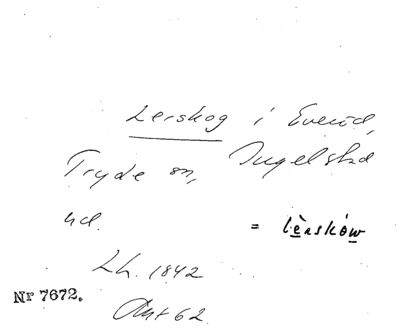 Lerskog i Everöd,
Tryde sn, Ingelstad
hd.
= lèrsków
Lh. 1842
Nr 7672.
62